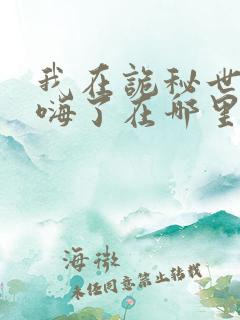 我在詭秘世
嗨了在哪里
海襒
未经同意禁止转载